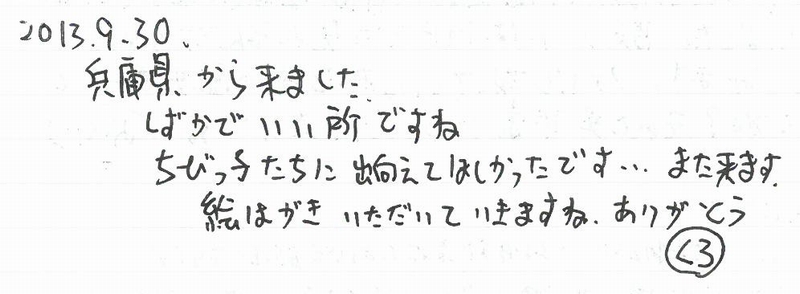 2013.9.30.
兵庫県から来ました.
しずかでいい所ですね
ちびっ子たちに出向えてほしかったです... また来ます.
絵はがきいただいていきますね. ありがとう
くろ